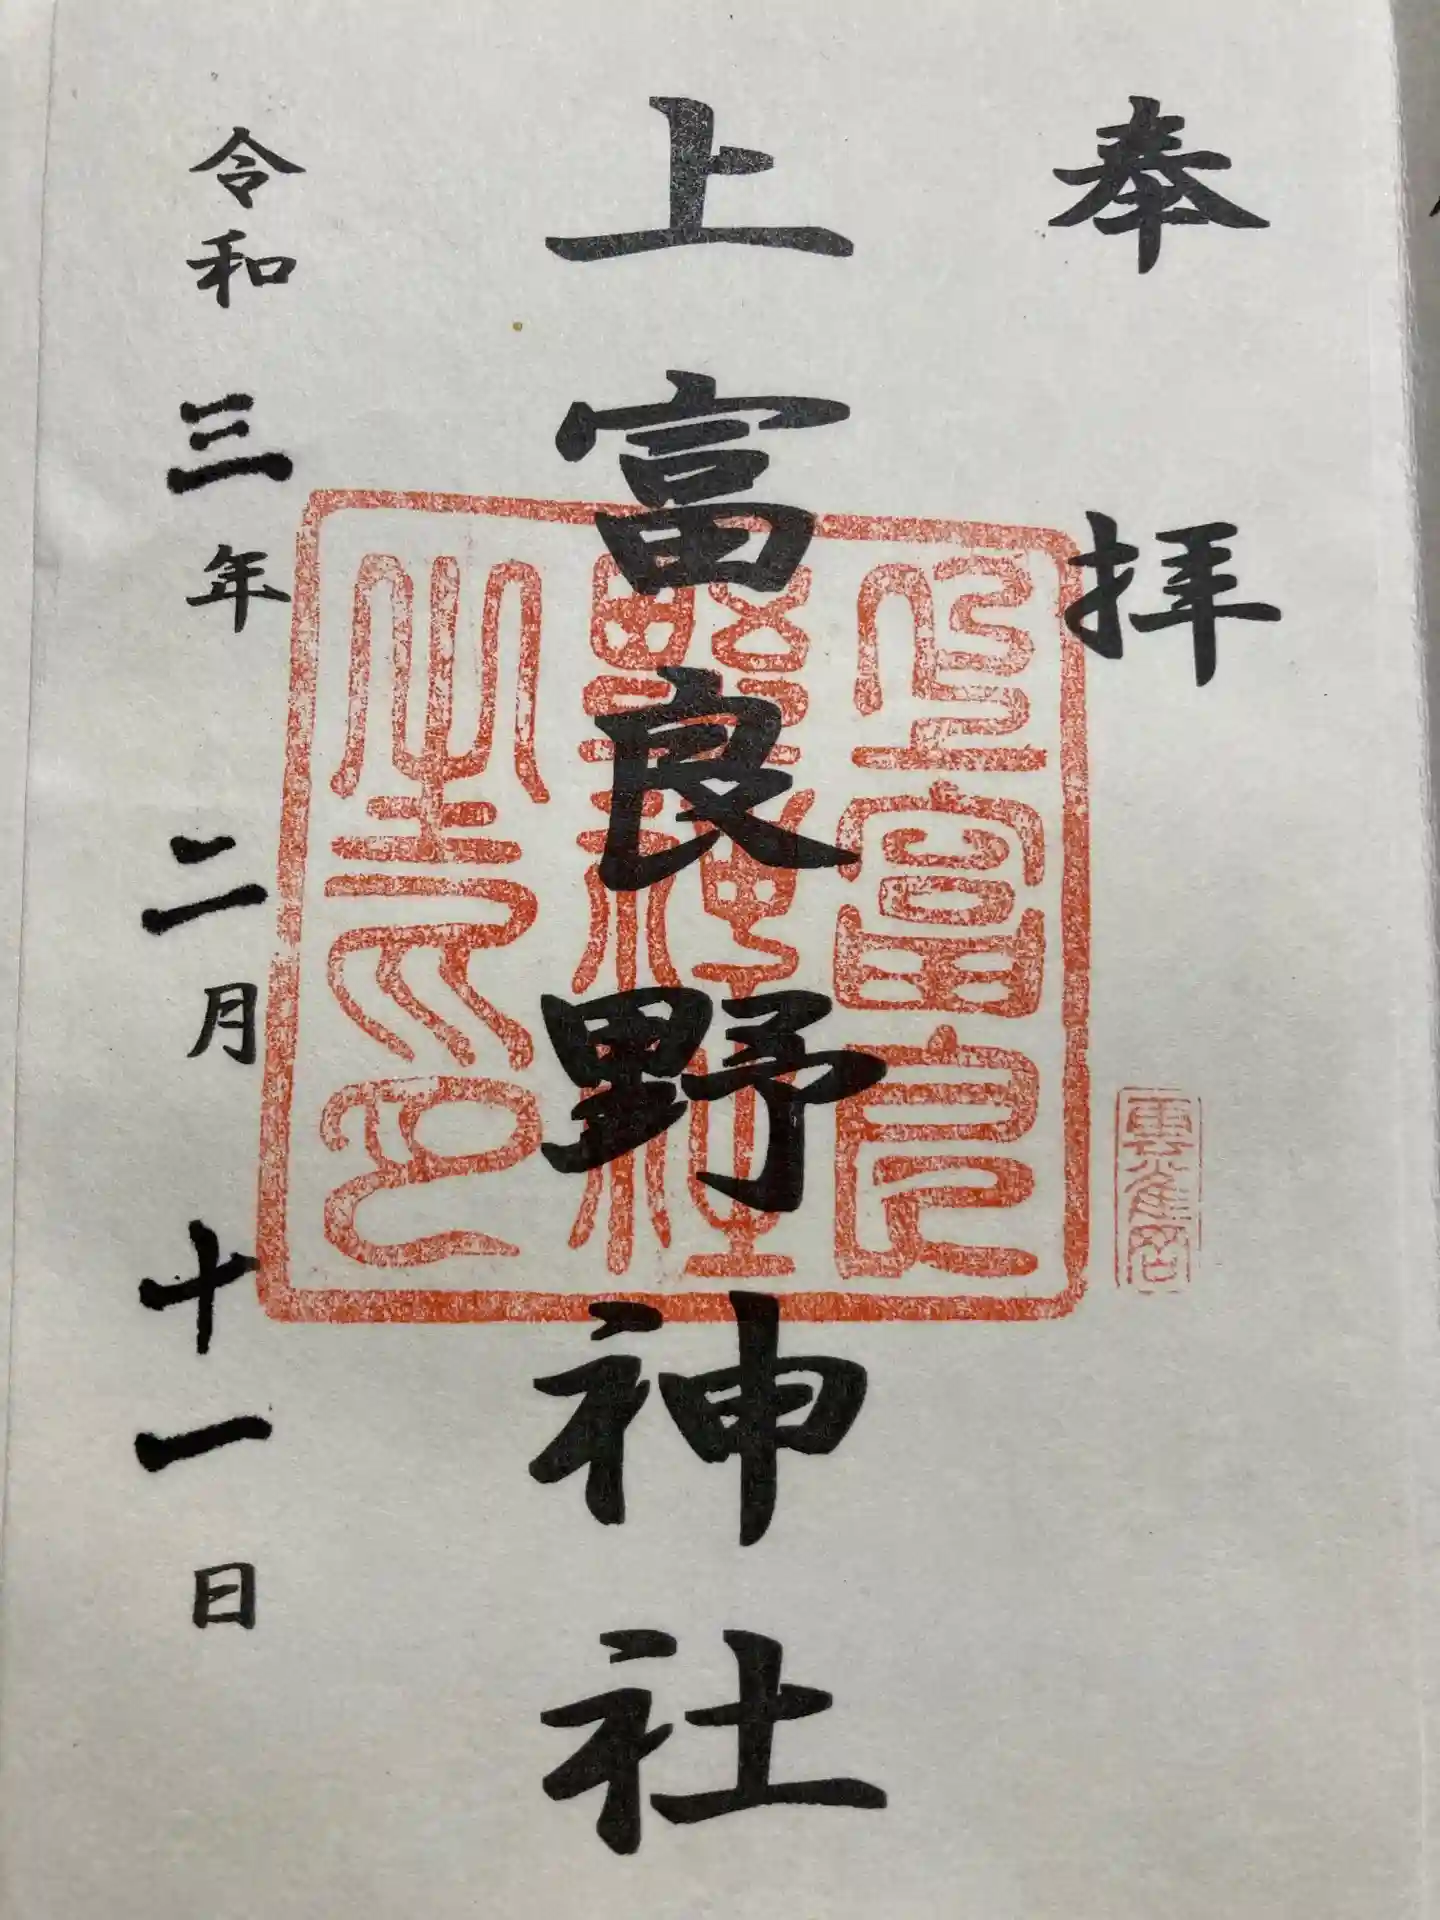 奉拝
上富良野神社
令和三年二月十一日
上富良
野神社
之璽印